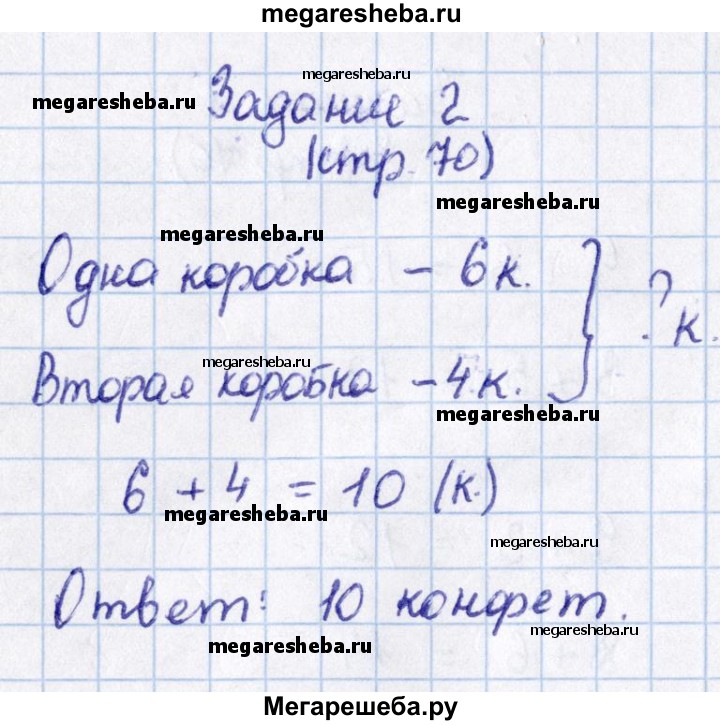 megaresheba.ru
megaresheba.ru
megaresheba.ru
Задание 2
(стр. 70)
megaresheba.ru
megaresheba.ru
Одна коробка – 6 к.
? к.
megaresheba.ru
Вторая коробка – 4 к.
megaresheba.ru
6 + 4 = 10 (к.)
megaresheba.ru
megaresheba.ru
Ответ: 10 конфет.
megaresheba.ru
megaresheba.ru
Мегарешеба.ру